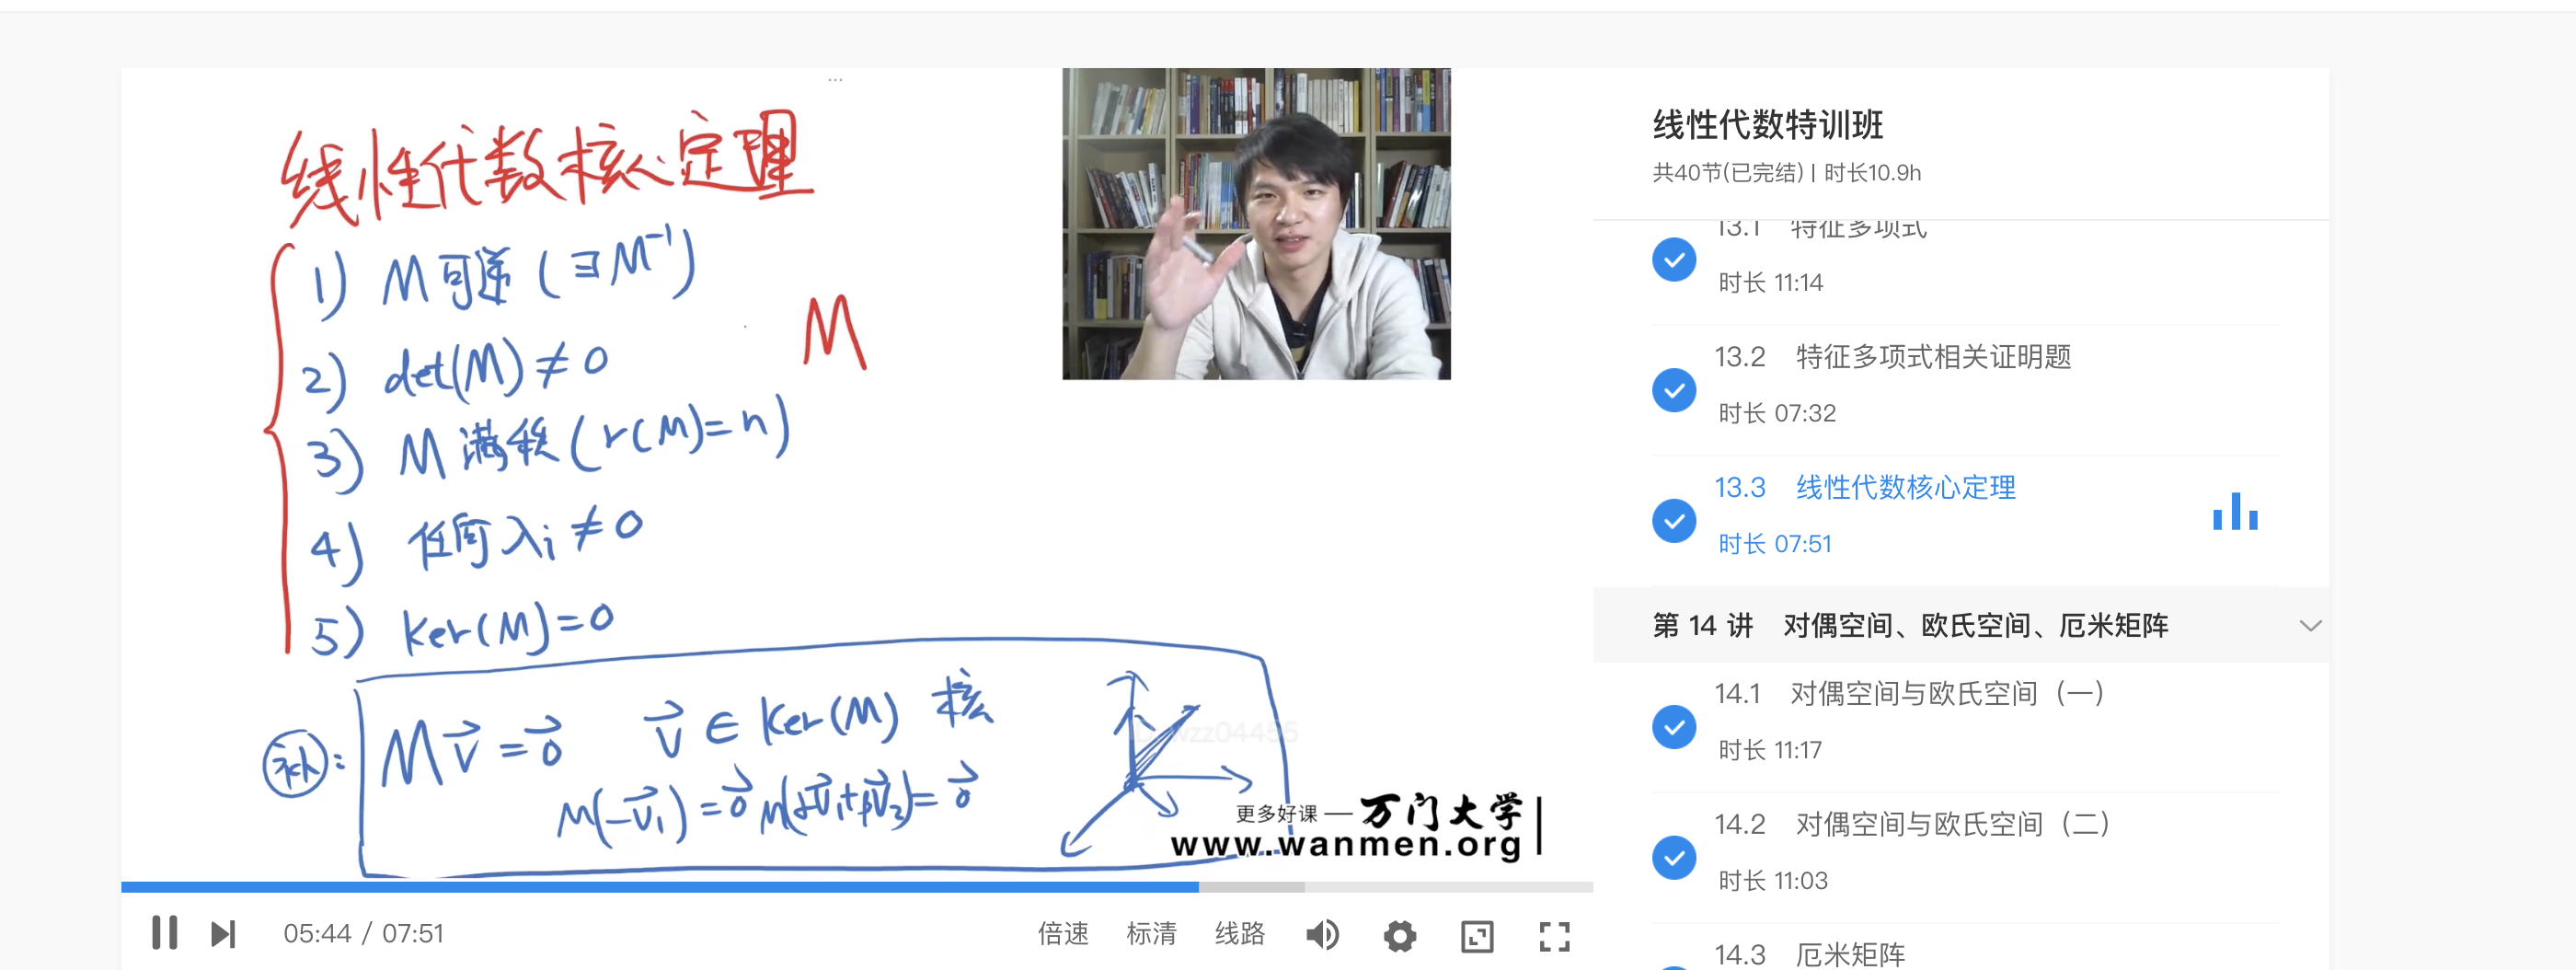 线性代数核心定理
1) M可逆 (∃M⁻¹)
2) det(M)≠0
3) M满秩 (r(M)=n)
4) 任何λi≠0
5) ker(M)=0
M
补: Mv⃗=0⃗ v⃗∈Ker(M) 核
M(-v⃗₁)=0⃗ M(αv⃗₁+βv⃗₂)=0⃗
wzz04455
更多好课 — 万门大学
www.wanmen.org
05:44 / 07:51
倍速 标清 线路
线性代数特训班
共40节(已完结) | 时长10.9h
13.1 特征多项式
时长 11:14
13.2 特征多项式相关证明题
时长 07:32
13.3 线性代数核心定理
时长 07:51
第 14 讲 对偶空间、欧氏空间、厄米矩阵
14.1 对偶空间与欧氏空间（一）
时长 11:17
14.2 对偶空间与欧氏空间（二）
时长 11:03
14.3 厄米矩阵